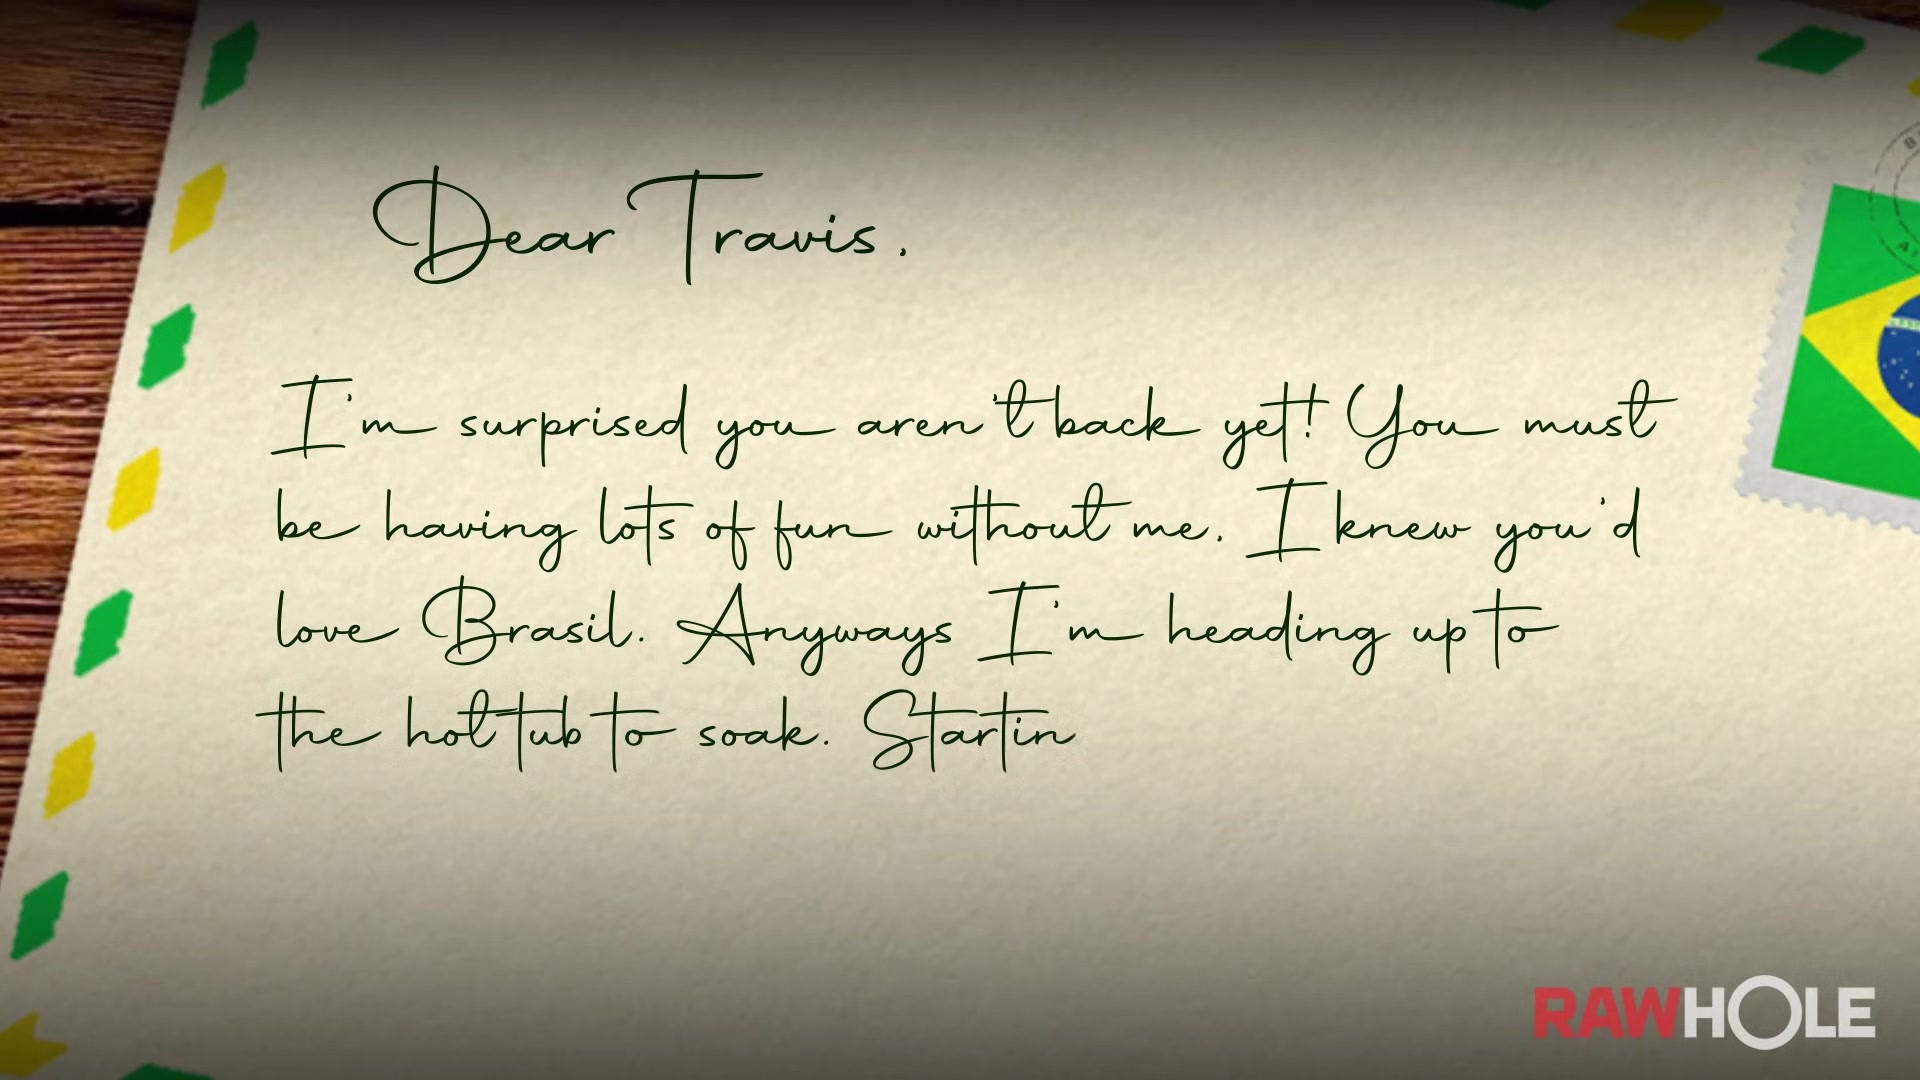 Dear Travis,
I'm surprised you aren't back yet! You must
be having lots of fun without me. I knew you'd
love Brasil. Anyways I'm heading up to
the hot tub to soak. Startin
RAWHOLE